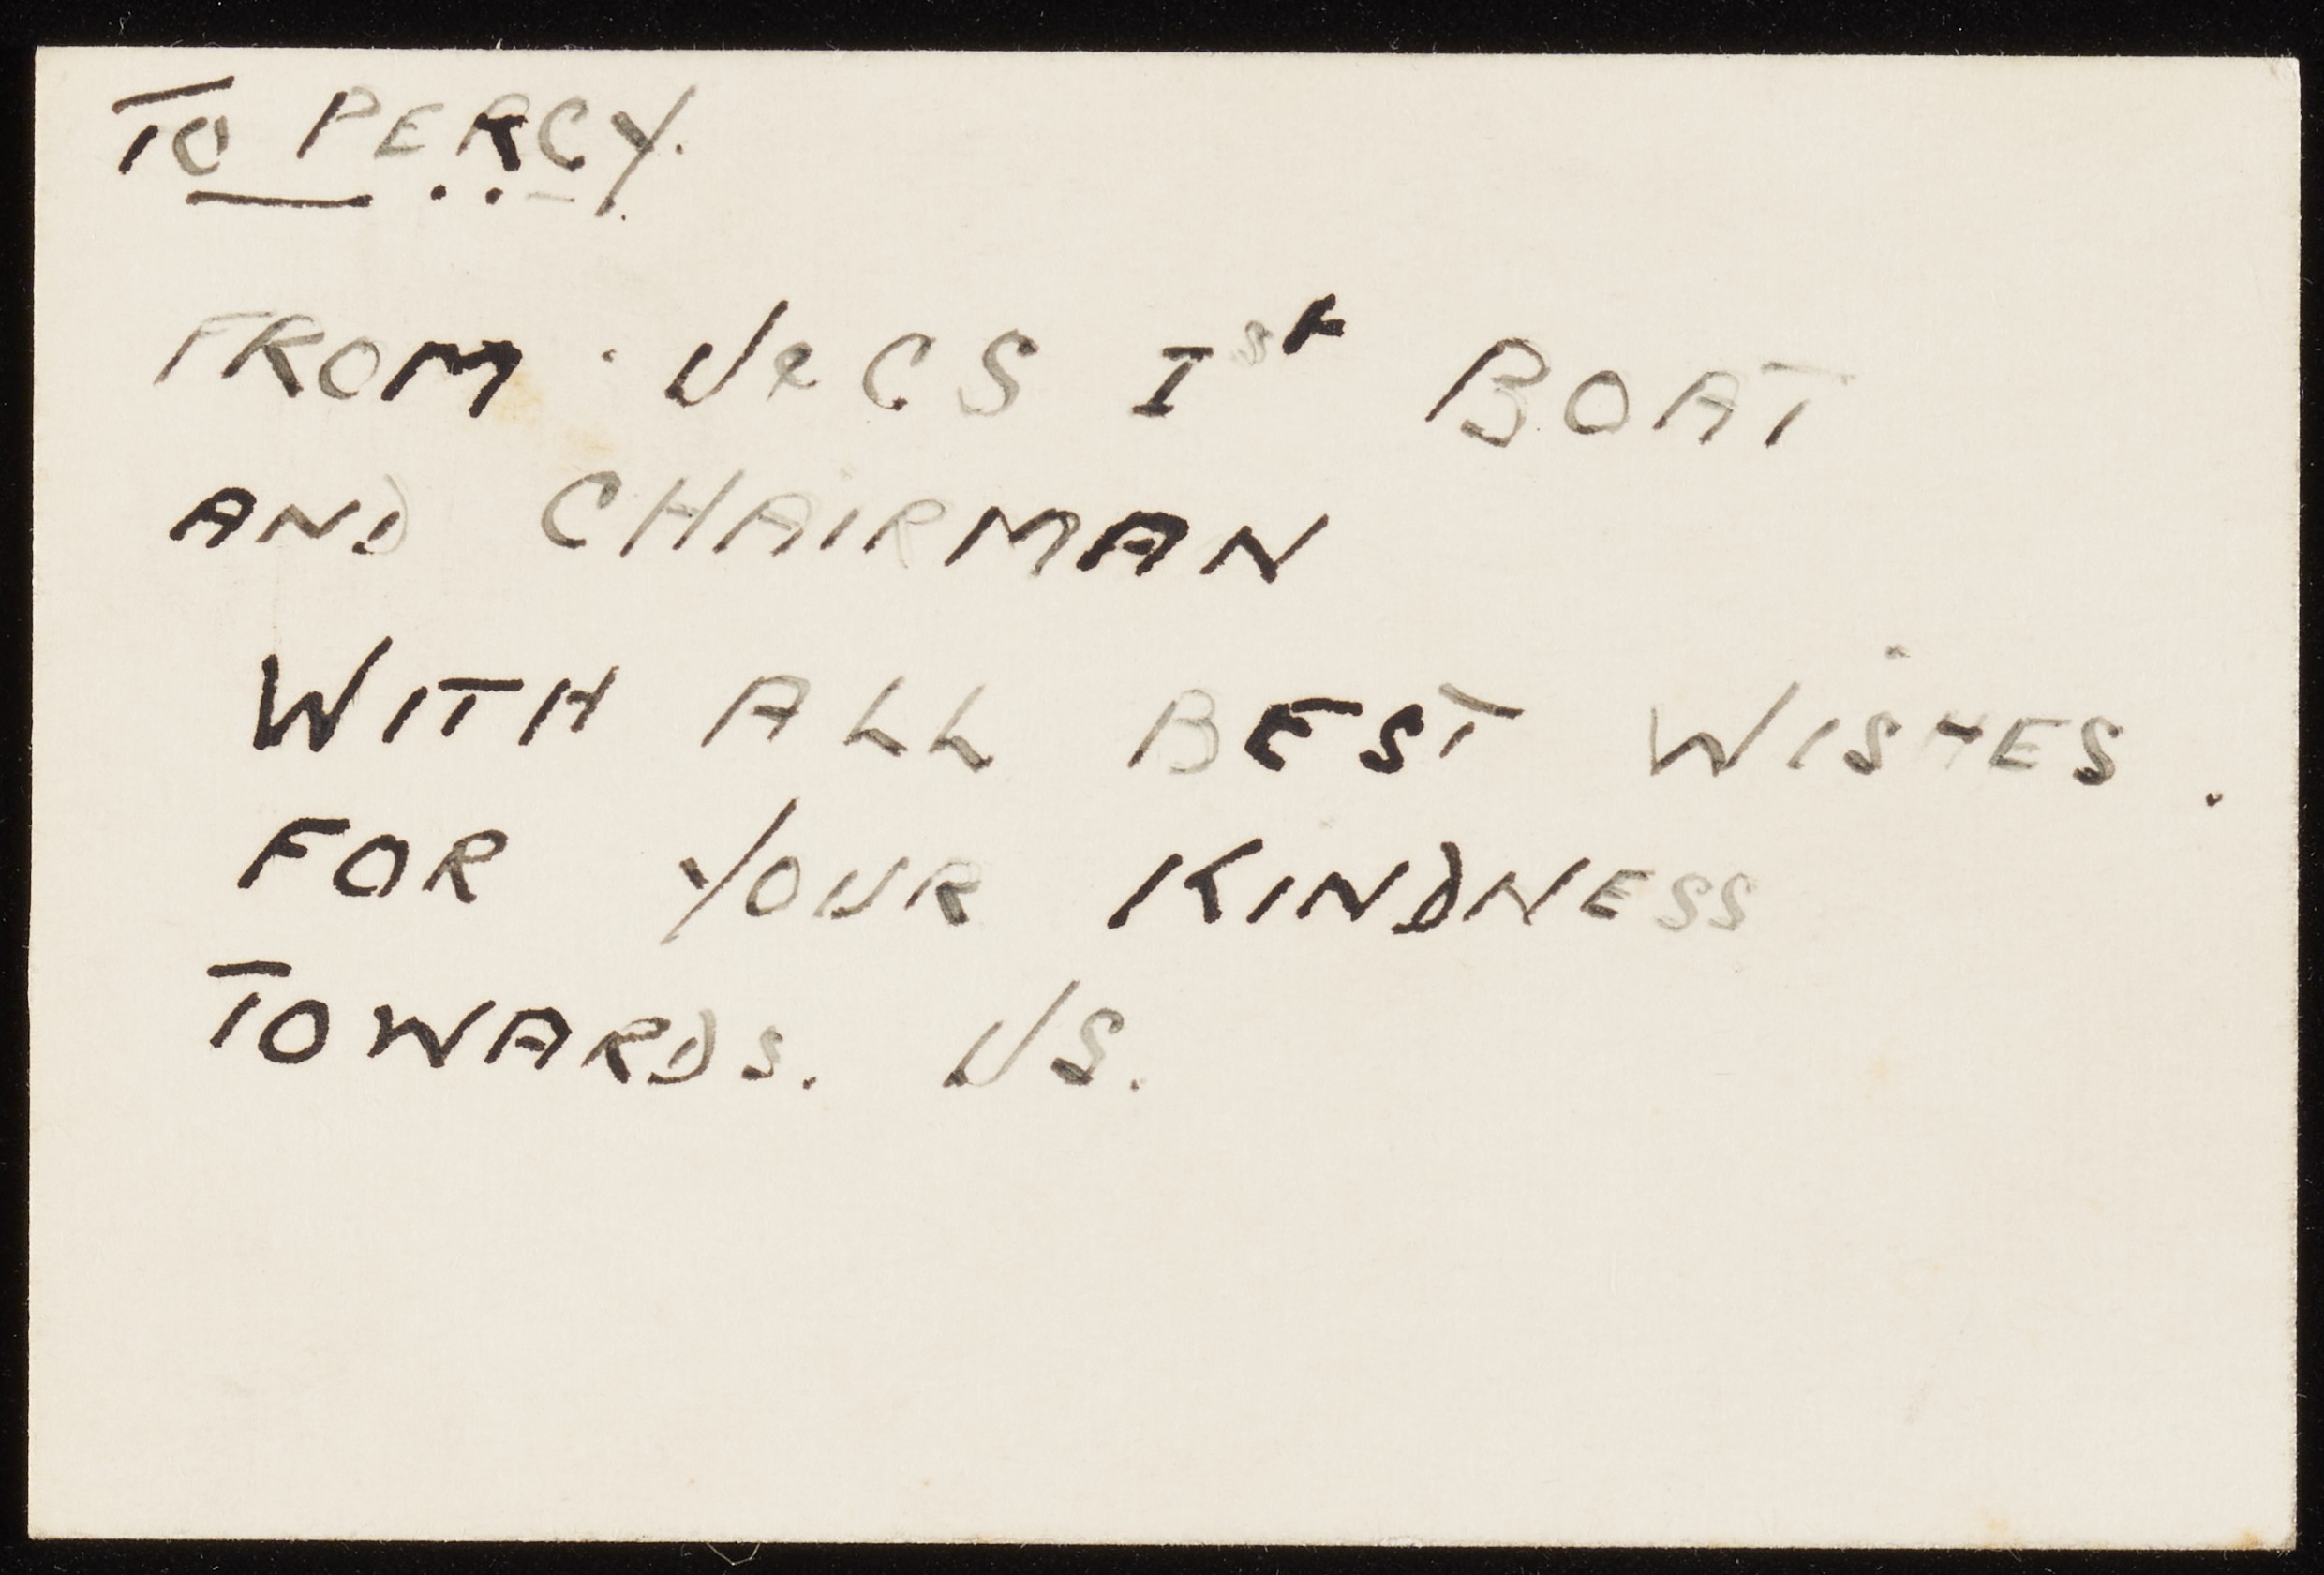 TO PERCY.
FROM · UCCS Ist BOAT
AND CHAIRMAN
WITH ALL BEST WISHES.
FOR YOUR KINDNESS
TOWARDS. US.